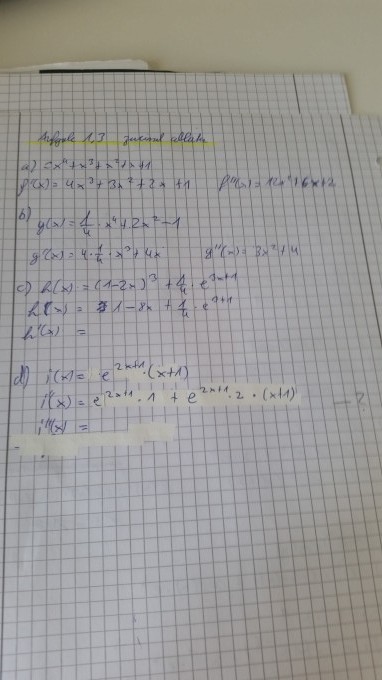 Aufgabe 1,3 zweimal ableiten
a) = x⁴+x³+x²+x+1
f'(x) = 4x³+3x²+2x+1 f''(x) = 12x²+6x+2
b) g(x) = 1/4 · x⁴+2x²-1
g'(x) = 4·1/4·x³+4x g''(x) = 3x²+4
c) h(x) = (1-2x)³ + 1/4 · e^(3x+1)
h'(x) = 1-8x + 1/4 · e
h''(x) =
d) i(x) = e^(2x+1) · (x+1)
i'(x) = e^(2x+1) · 1 + e^(2x+1) · 2 · (x+1)
i''(x) =